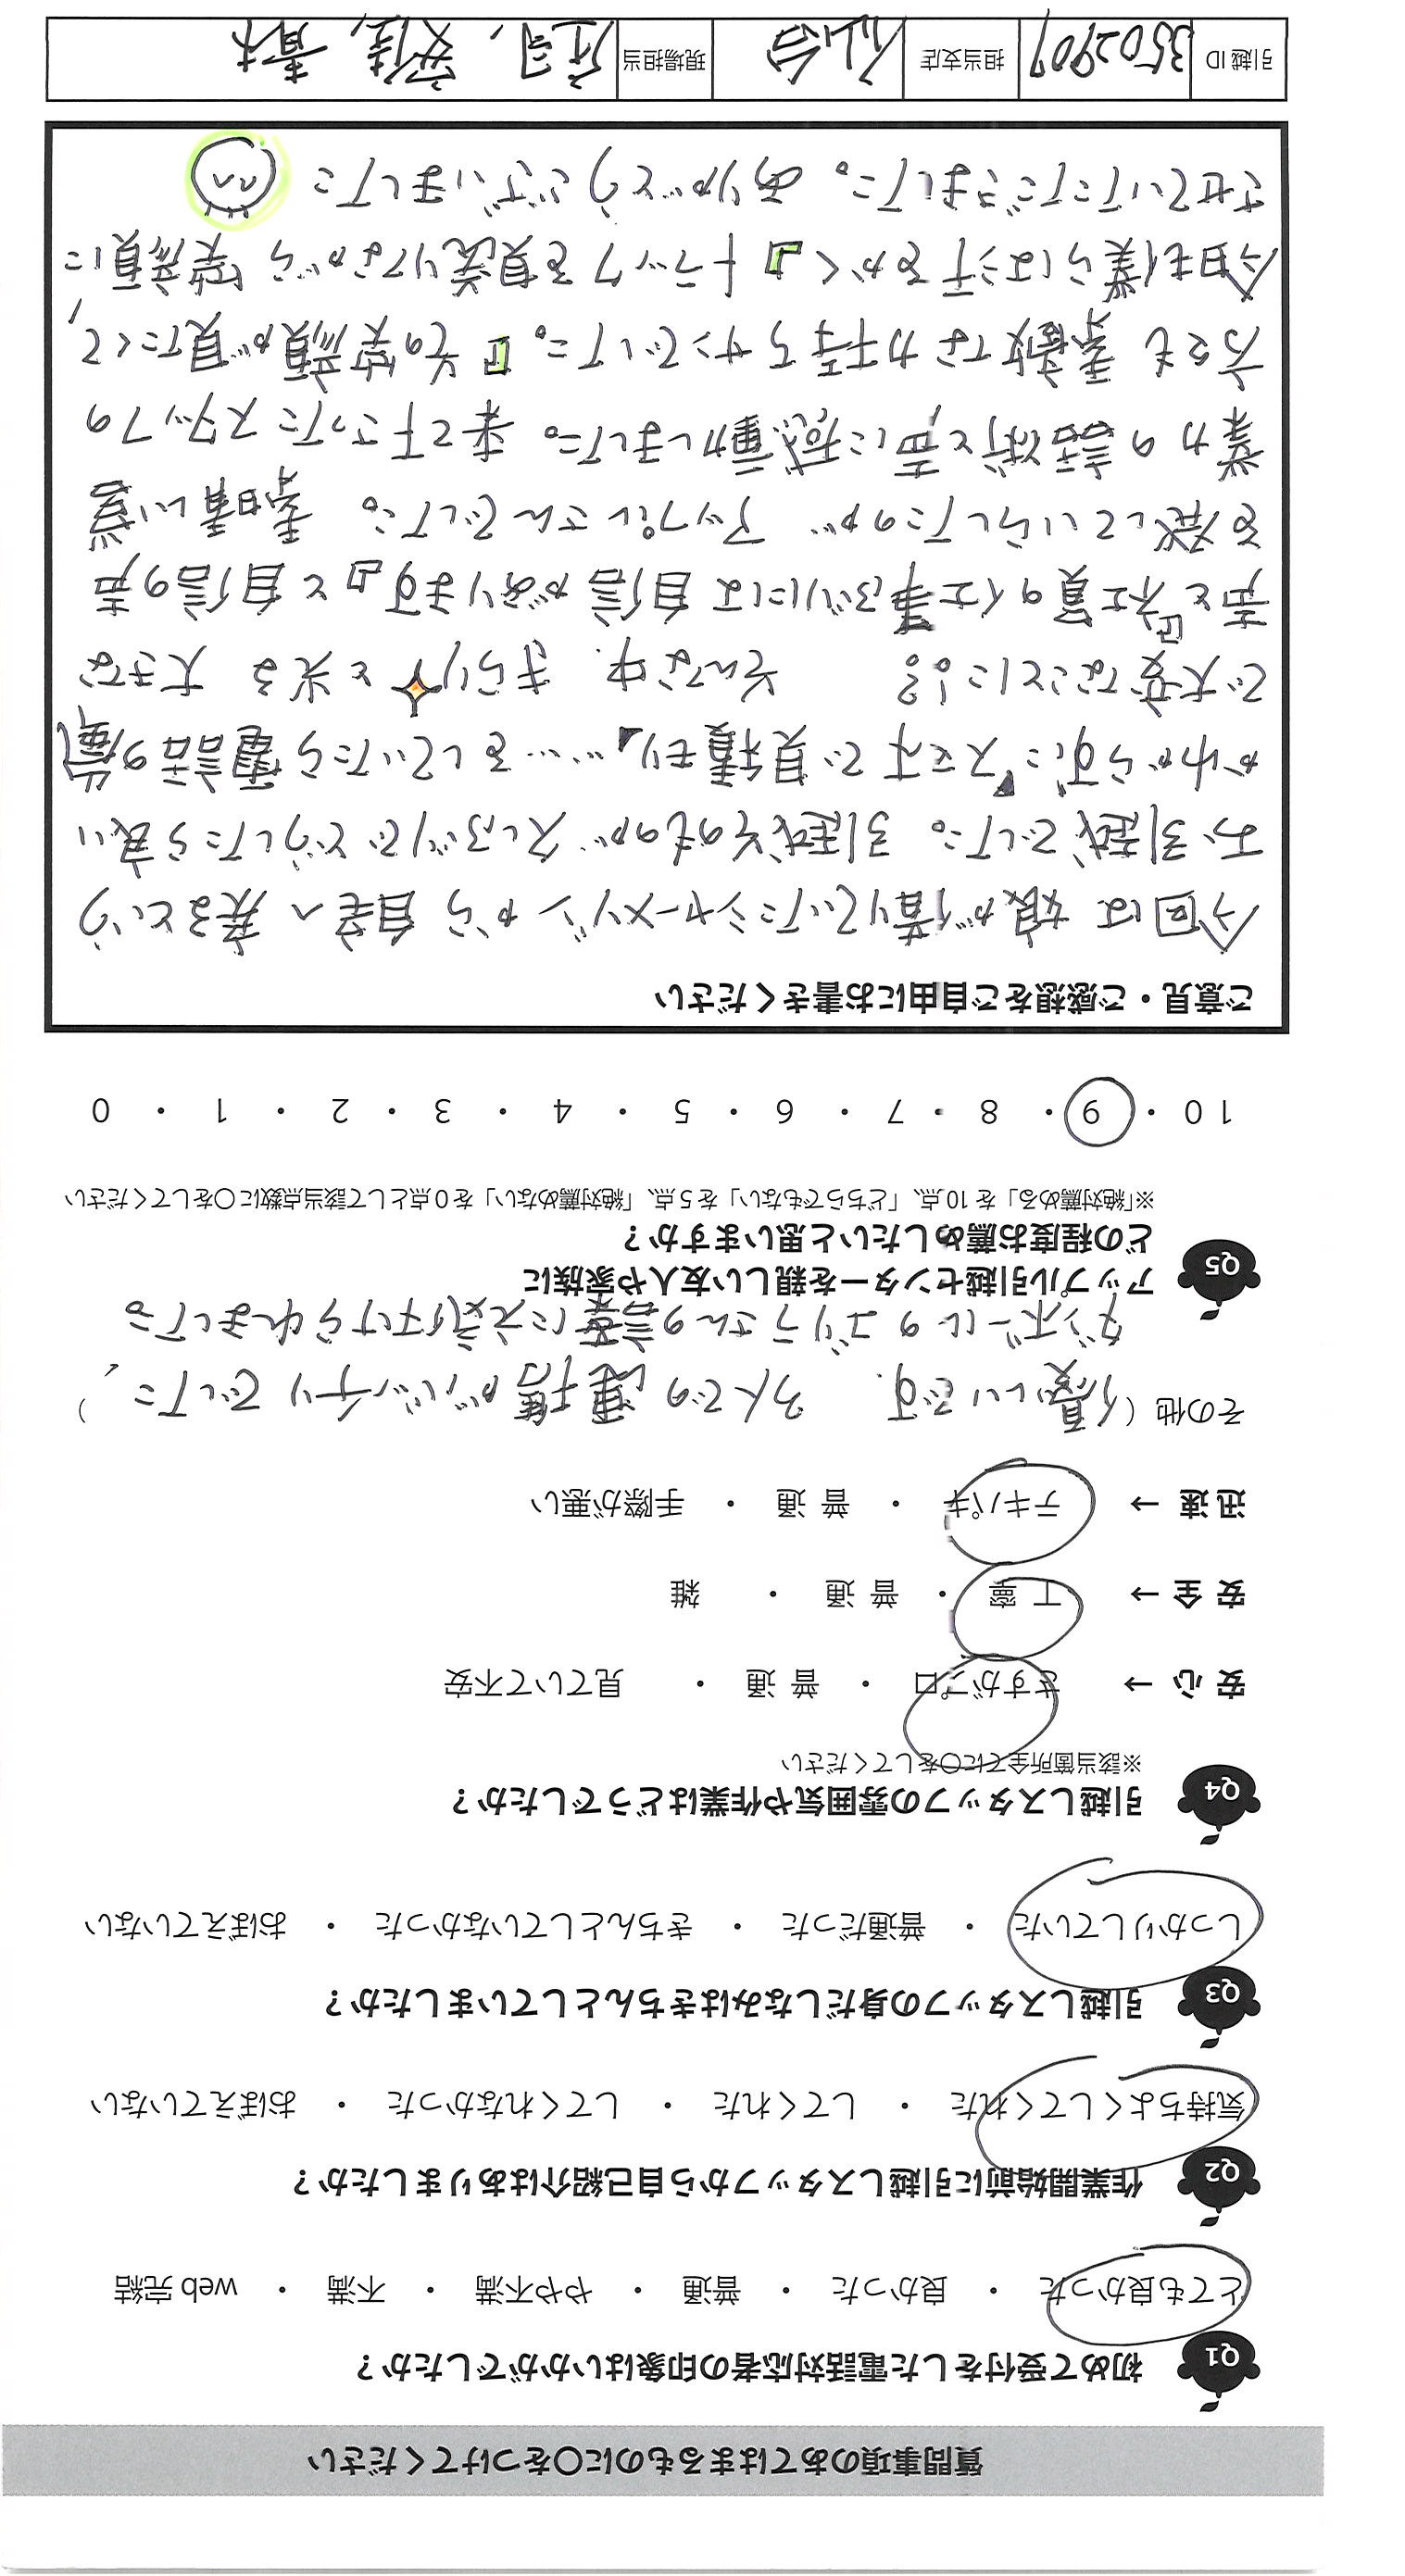 質問事項のあてはまるものに○をつけてください
Q1 初めて受付をした電話対応者の印象はいかがでしたか？
とても良かった ・ 良かった ・ 普通 ・ やや不満 ・ 不満 ・ web 完結
Q2 作業開始前に引越しスタッフから自己紹介はありましたか？
気持ちよくしてくれた ・ してくれた ・ してくれなかった ・ おぼえていない
Q3 引越しスタッフの身だしなみはきちんとしていましたか？
しっかりしていた ・ 普通だった ・ きちんとしていなかった ・ おぼえていない
Q4 引越しスタッフの雰囲気や作業はどうでしたか？
※該当箇所全てに○をしてください
安 心 → さすがプロ ・ 普 通 ・ 見ていて不安
安 全 → 丁 寧 ・ 普 通 ・ 雑
迅 速 → テキパキ ・ 普 通 ・ 手際が悪い
その他（ 優しいです。 3人での連携がバッチリでした、）
ダンボールのゴリラさんの言葉に元気付けられました。
Q5 アップル引越センターを親しい友人や家族に
どの程度お薦めしたいと思いますか？
※「絶対薦める」を 10 点、「どちらでもない」を 5 点、「絶対薦めない」を 0 点として該当点数に○をしてください
10 ・ 9 ・ 8 ・ 7 ・ 6 ・ 5 ・ 4 ・ 3 ・ 2 ・ 1 ・ 0
ご意見・ご感想をご自由にお書きください
今回は娘が借りていたシャーメゾンから自宅へ戻るという
お引越でした。引越そのものが久しぶりでどうしたら良い
かわからずに"スマホで見積もり"……をしていたら電話の嵐
で大変なことに!?。 そんな中、きらりと光る 大きな
声と「社員の仕事ぶりには自信があります」と自信の声
を発していらしたのが アップルさんでした。 素晴しい営
業力の話術と声に感動しました。来て下さったスタッフの
方々も素敵な力持ちサンでした。『その笑顔が見たくて、
今日も僕らは汗をかく』トラックを見送りながら笑顔に
させていただきました。ありがとうございました
引越 ID 3502907 担当支店 仙台 現場担当 庄司、安住、青木